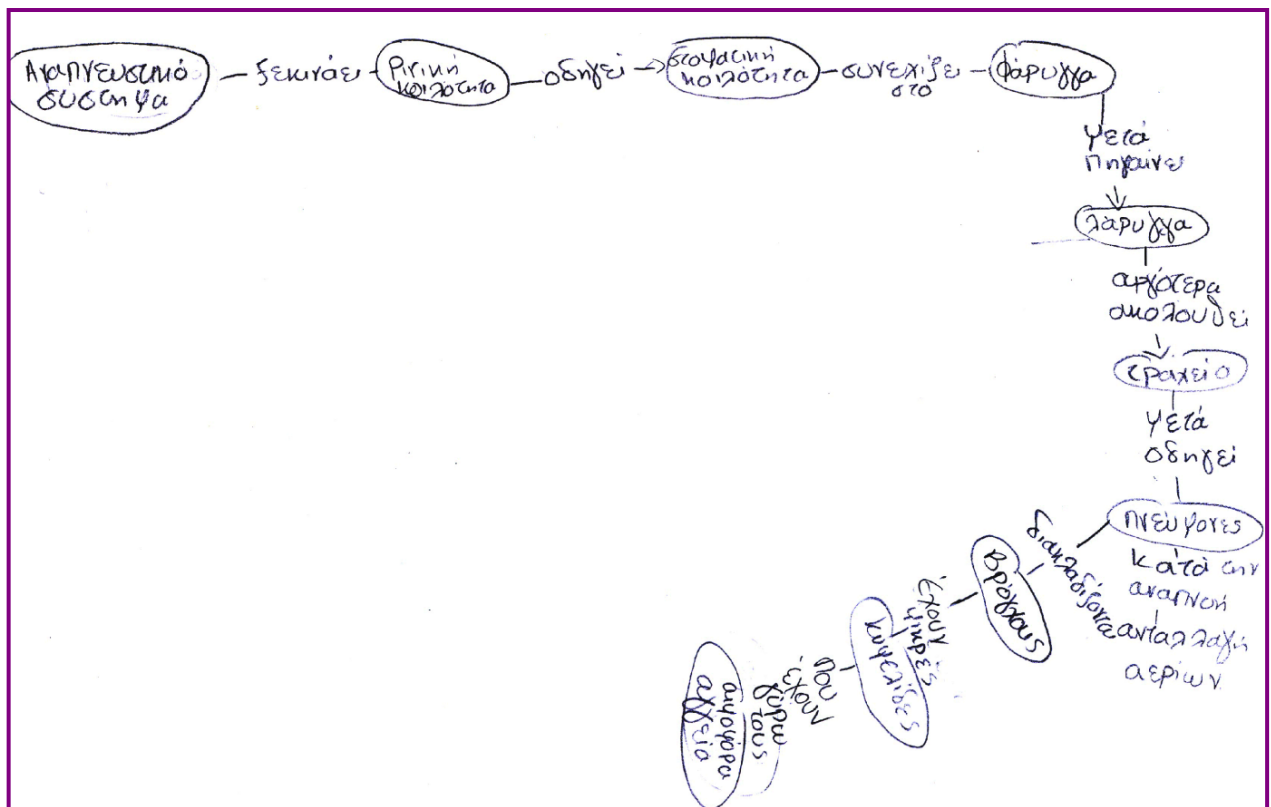 Αναπνευστικό
σύστημα
ξεκινάει
Ρινική
κοιλότητα
οδηγεί
στοματική
κοιλότητα
συνεχίζει
στο
Φάρυγγα
μετά
πηγαίνει
λάρυγγα
αργότερα
ακολουθεί
τραχεία
μετά
οδηγεί
πνεύμονες
κατά την
αναπνοή
ανταλλαγή
αερίων
διακλαδίζονται
Βρόγχους
έχουν
μικρές
κυψελίδες
που
έχουν
γύρω
τους
αιμοφόρα
αγγεία